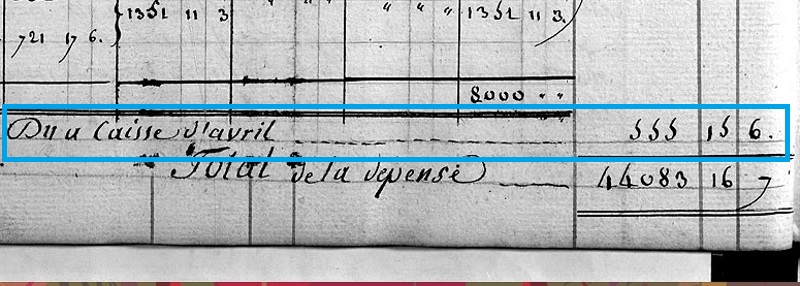 1351 11 3 " " " 1351 11 3.
721 17 6.
8000 " "
Du a Caisse d'avril 555 15 6.
Total de la depense 44083 16 7